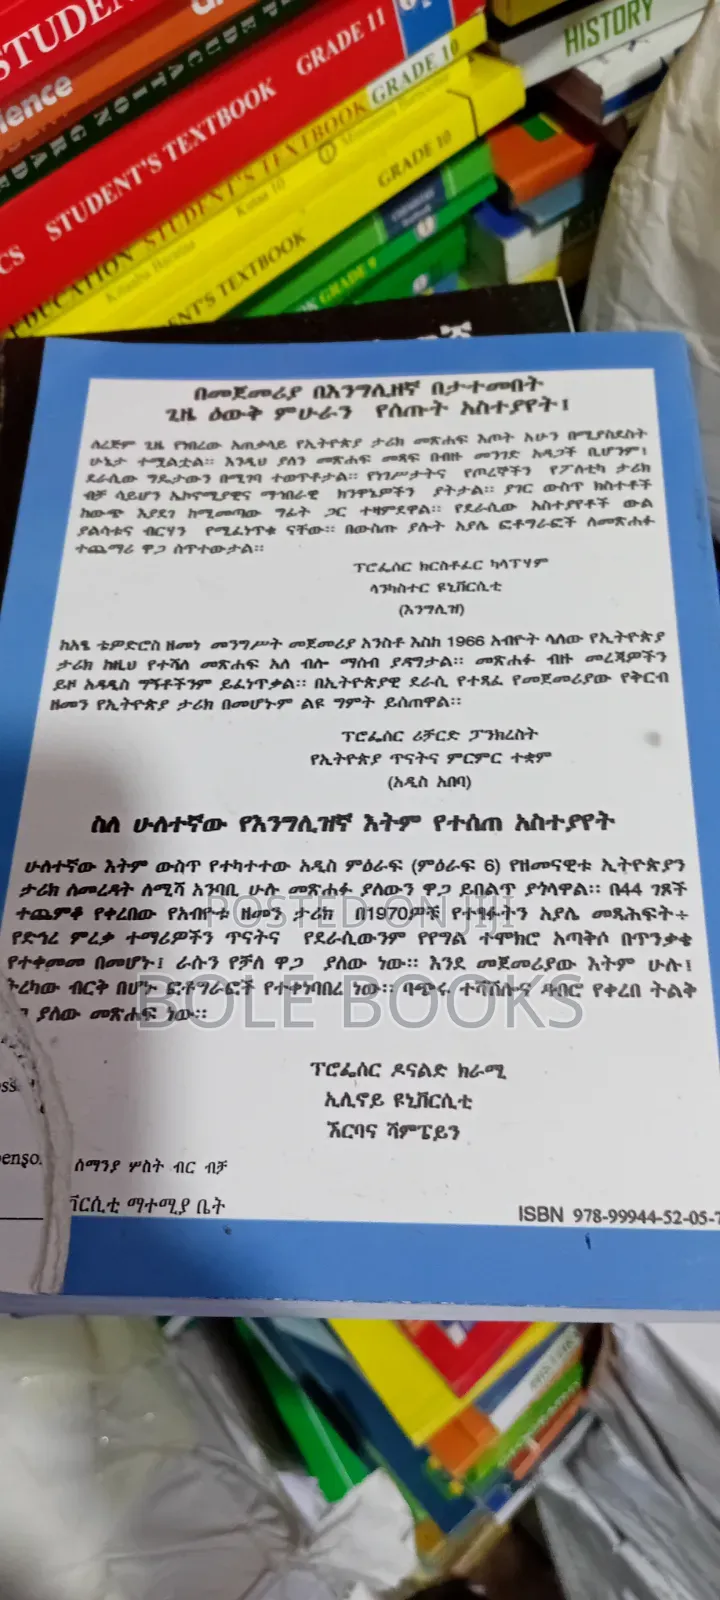 STUDENT'S TEXTBOOK GRADE 11
STUDENT'S TEXTBOOK GRADE 10
GRADE 10
HISTORY
በመጀመሪያ በእንግሊዘኛ በታተመበት
ጊዜ ዕውቅ ምሁራን የሰጡት አስተያየት፤
ለረጅም ጊዜ የነበረው አጠቃላይ የኢትዮጵያ ታሪክ መጽሐፍ እጦት አሁን በሚያስደስት
ሁኔታ ተሟልቷል። እንዲህ ያለን መጽሐፍ መጻፍ በብዙ መንገድ አዳጋች ቢሆንም፤
ደራሲው ግዴታውን በሚገባ ተወጥቶታል። የነገሥታትና የጦረኞችን የፖለቲካ ታሪክ
ብቻ ሳይሆን ኢኮኖሚያዊና ማኅበራዊ ክንዋኔዎችን ያትታል። ያገር ውስጥ ክስተቶች
ከውጭ እያደገ ከሚመጣው ግፊት ጋር ተዛምደዋል። የደራሲው አስተያየቶች ውል
ያልሳቱና ብርሃን የሚፈነጥቁ ናቸው። በውስጡ ያሉት አያሌ ፎቶግራፎች ለመጽሐፉ
ተጨማሪ ዋጋ ሰጥተውታል።
ፕሮፌሰር ክርስቶፈር ክላፕሃም
ላንካስተር ዩኒቨርሲቲ
(እንግሊዝ)
ከአፄ ቴዎድሮስ ዘመነ መንግሥት መጀመሪያ አንስቶ እስከ 1966 አብዮት ላለው የኢትዮጵያ
ታሪክ ከዚህ የተሻለ መጽሐፍ አለ ብሎ ማሰብ ያዳግታል። መጽሐፉ ብዙ መረጃዎችን
ይዞ አዳዲስ ግኝቶችንም ይፈነጥቃል። በኢትዮጵያዊ ደራሲ የተጻፈ የመጀመሪያው የቅርብ
ዘመን የኢትዮጵያ ታሪክ በመሆኑም ልዩ ግምት ይሰጠዋል።
ፕሮፌሰር ሪቻርድ ፓንክረስት
የኢትዮጵያ ጥናትና ምርምር ተቋም
(አዲስ አበባ)
ስለ ሁለተኛው የእንግሊዝኛ እትም የተሰጠ አስተያየት
ሁለተኛው እትም ውስጥ የተካተተው አዲስ ምዕራፍ (ምዕራፍ 6) የዘመናዊቱ ኢትዮጵያን
ታሪክ ለመረዳት ለሚሻ አንባቢ ሁሉ መጽሐፉ ያለውን ዋጋ ይበልጥ ያጎላዋል። በ44 ገጾች
ተጨምቆ የቀረበው የአብዮቱ ዘመን ታሪክ በ1970ዎቹ የተፃፉትን አያሌ መጻሕፍት፥
የድኅረ ምረቃ ተማሪዎችን ጥናትና የደራሲውንም የግል ተሞክሮ አጣቅሶ በጥንቃቄ
የተቀመመ በመሆኑ፤ ራሱን የቻለ ዋጋ ያለው ነው። እንደ መጀመሪያው እትም ሁሉ፤
ብርቅ በሆኑ ፎቶግራፎች የተቀነባበረ ነው። ባጭሩ ተሻሽሎና ዳብሮ የቀረበ ትልቅ
ያለው መጽሐፍ ነው።
ፕሮፌሰር ዶናልድ ክራሚ
ኢሊኖይ ዩኒቨርሲቲ
ኧርባና ሻምፔይን
ሰማንያ ሦስት ብር ብቻ
ማተሚያ ቤት
ISBN 978-99944-52-05-7
POSTED ON JIJI
BOLE BOOKS